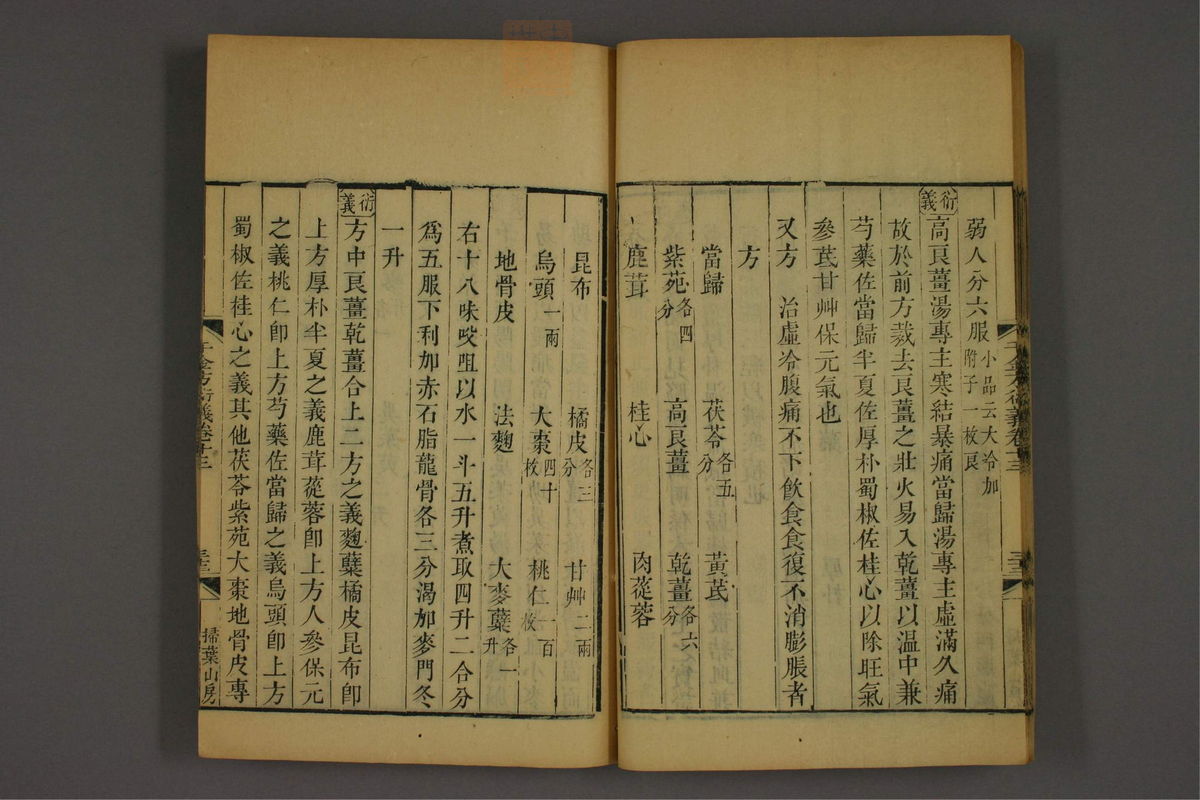 弱人分六服小品云大冷加附子一枚良
衍義高良薑湯專主寒結暴痛當歸湯專主虛滿久痛
故於前方裁去良薑之壯火易入乾薑以温中兼
芍藥佐當歸半夏佐厚朴蜀椒佐桂心以除旺氣
參芪甘艸保元氣也
又方　治虛冷腹痛不下飲食食復不消膨脹者
方
當歸　茯苓各五分　黃芪
紫苑各四分　高良薑　乾薑各六分
鹿茸　桂心　肉蓯蓉
昆布　橘皮各三分　甘艸二兩
烏頭一兩　大棗四十枚　桃仁一百枚
地骨皮　法麴　大麥蘗各一升
右十八味㕮咀以水一斗五升煮取四升二合分
爲五服下利加赤石脂龍骨各三分渴加麥門冬
一升
衍義方中良薑乾薑合上二方之義麴蘗橘皮昆布卽
上方厚朴半夏之義鹿茸蓯蓉卽上方人參保元
之義桃仁卽上方芍藥佐當歸之義烏頭卽上方
蜀椒佐桂心之義其他茯苓紫苑大棗地骨皮專
千金方衍義卷十三
掃葉山房